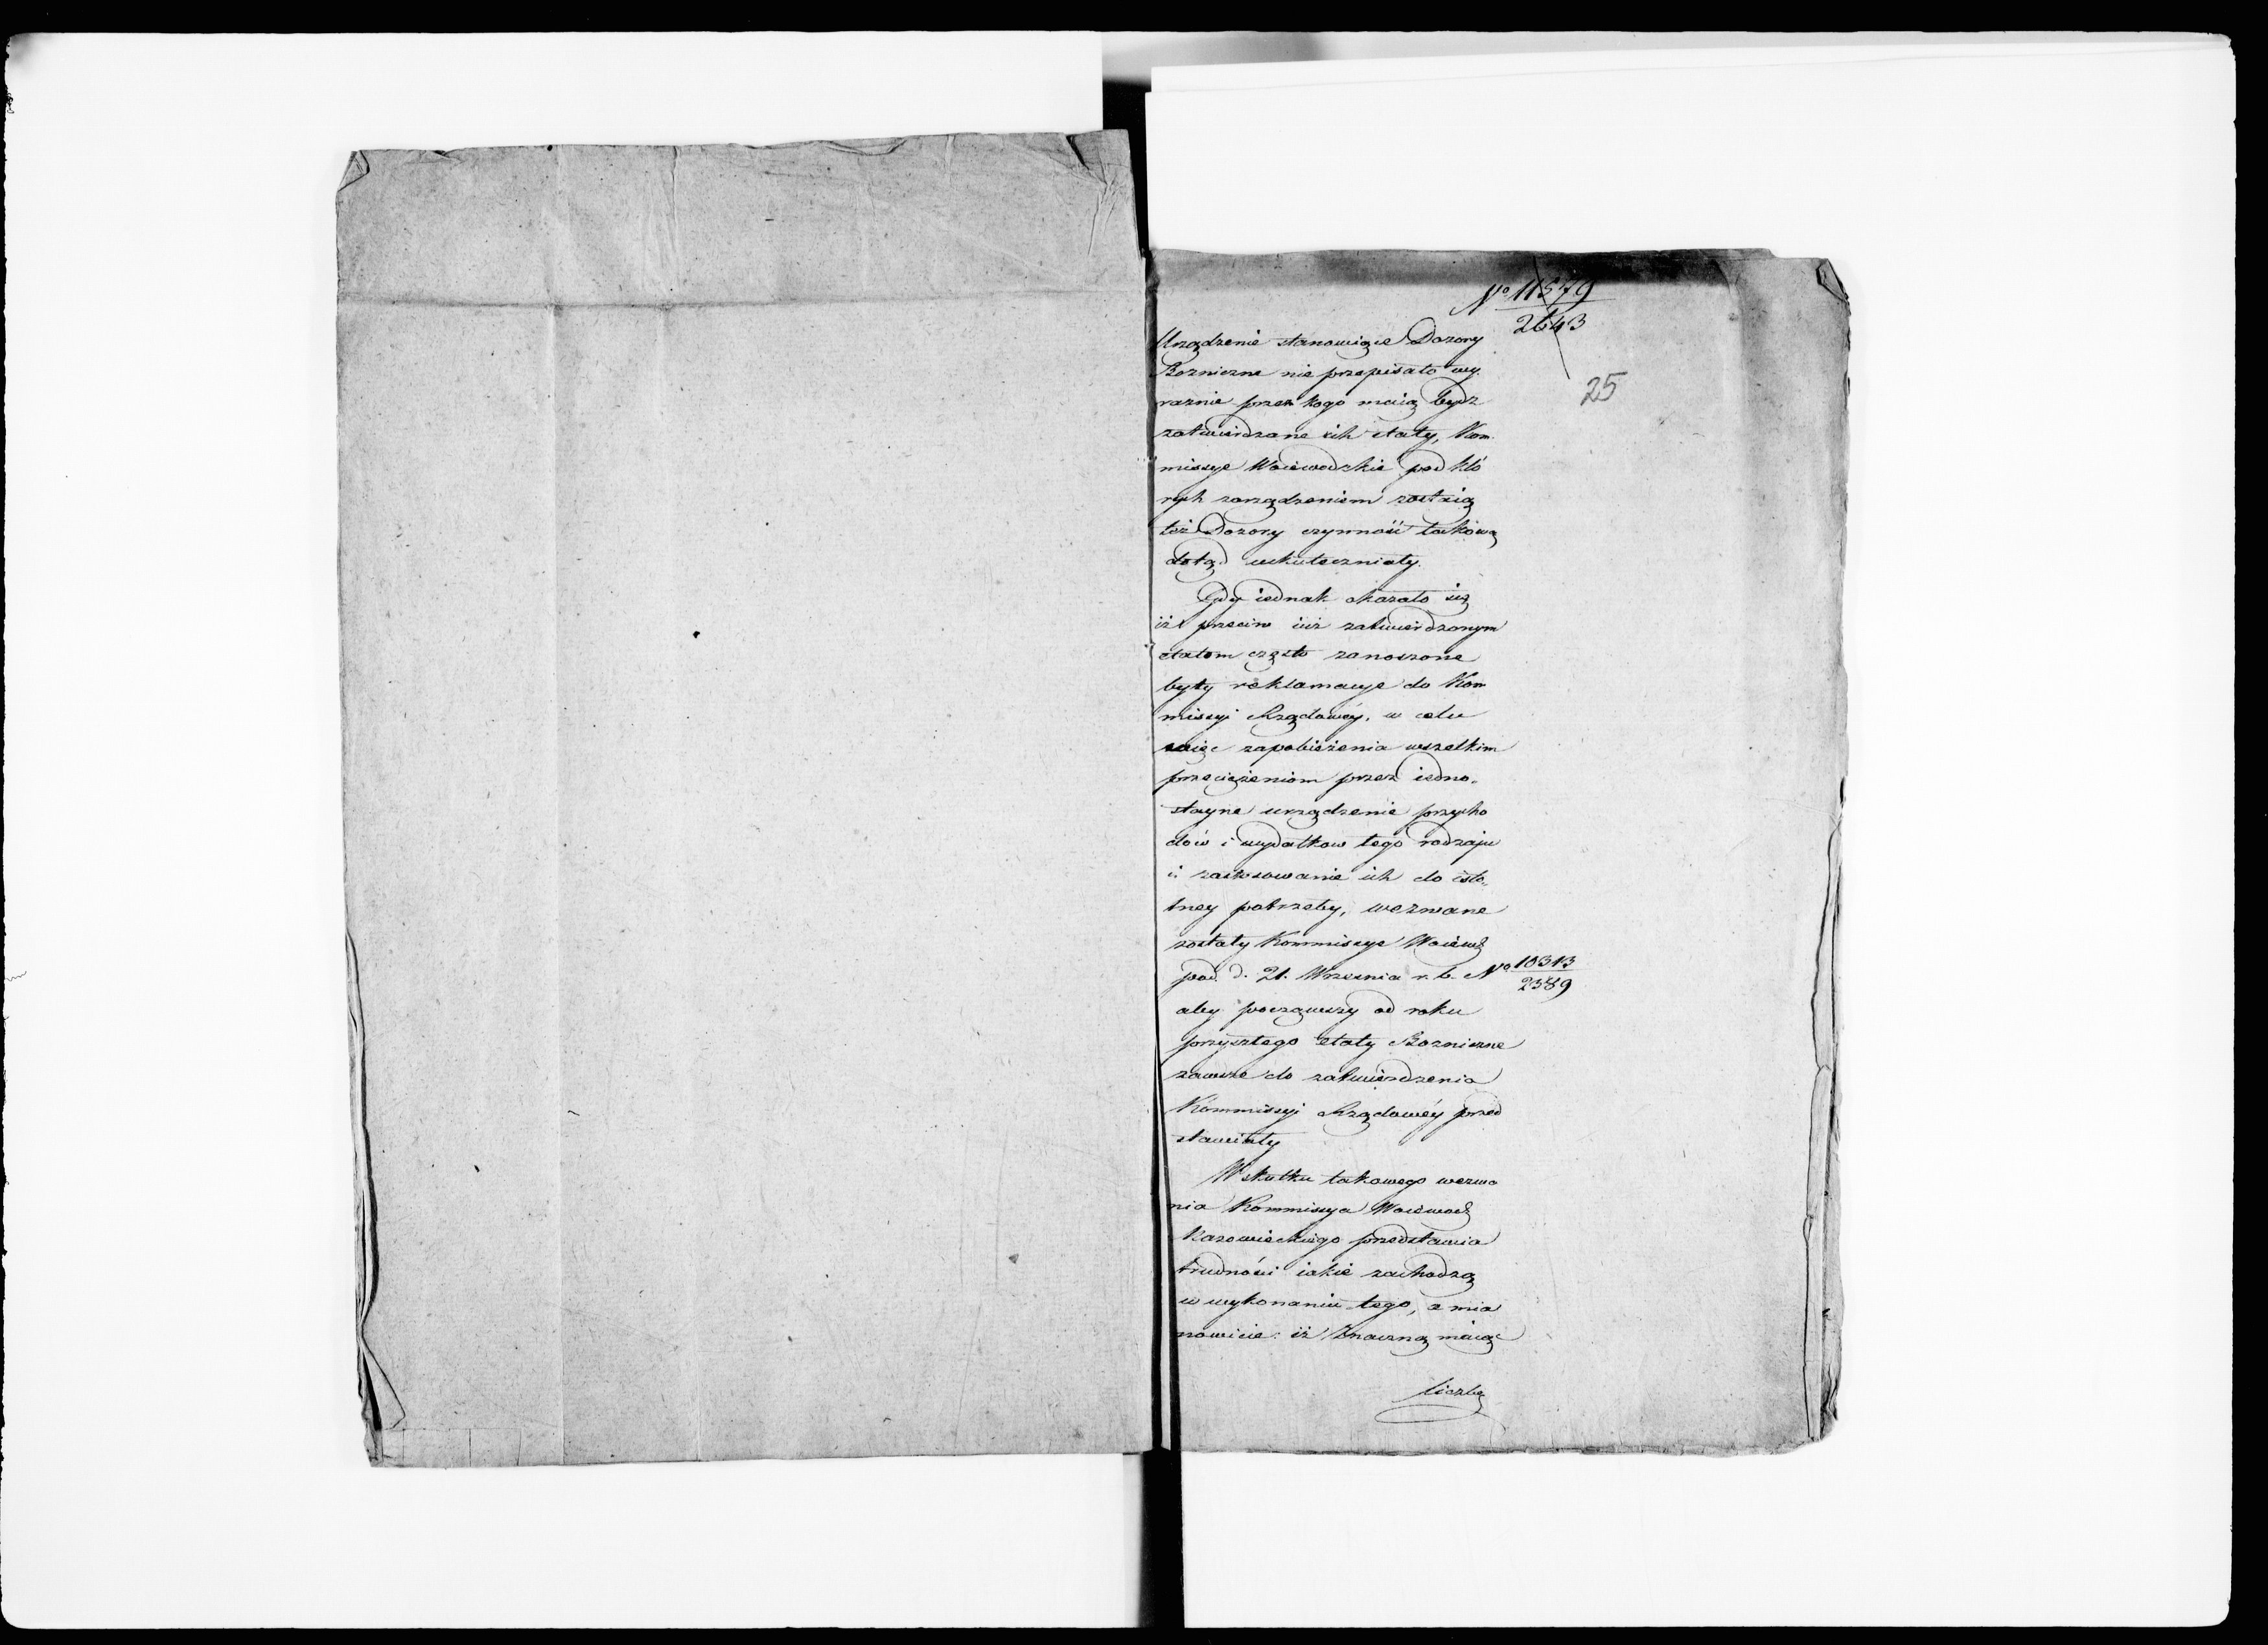 No 11579
2643
25
Urządzenie stanowiące Dozory
Bożnicze nie przepisało wy
raźnie przez kogo maią bydź
zatwierdzane ich etaty, Kom
missye Woiewodzkie pod któ
rych zarządzeniem zostaią
też Dozory czynność takową
dotąd uskuteczniały.
Gdy iednak okazało się
iż przeciw iuż zatwierdzonym
etatom często zanoszone
były reklamacye do Kom
missyi Rządowéy, w celu
więc zapobieżenia wszelkim
przeciążeniom przez iedno„
stayne urządzenie przycho
dów i wydatkow tego rodzaju
i zastosowanie ich do isto„
tney potrzeby, wezwane
zostały Kommissye Woiewd
pod d. 21. Września r. b. No 10313
2389
aby począwszy od roku
przyszłego etaty Boznicze
zawsze do zatwierdzenia
Kommissyi Rządowéy przed
stawiały
W skutku takowego wezwa
nia Kommissya Woiewod
Mazowieckiego przedstawia
trudności iakie zachodzą
w wykonaniu tego, a mia
nowicie: iż znaczną maiąc
liczbę